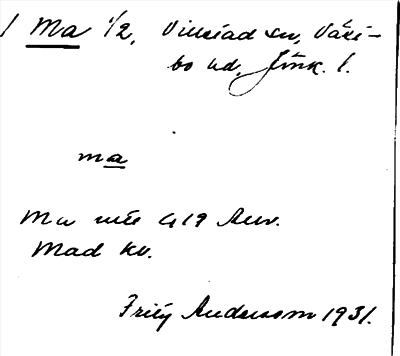 1 Ma 1/2, Villstad sn, Väst-
bo hd, Jönk. l.
ma
Ma 419
Mad kv.
Fritz Andersson 1931.